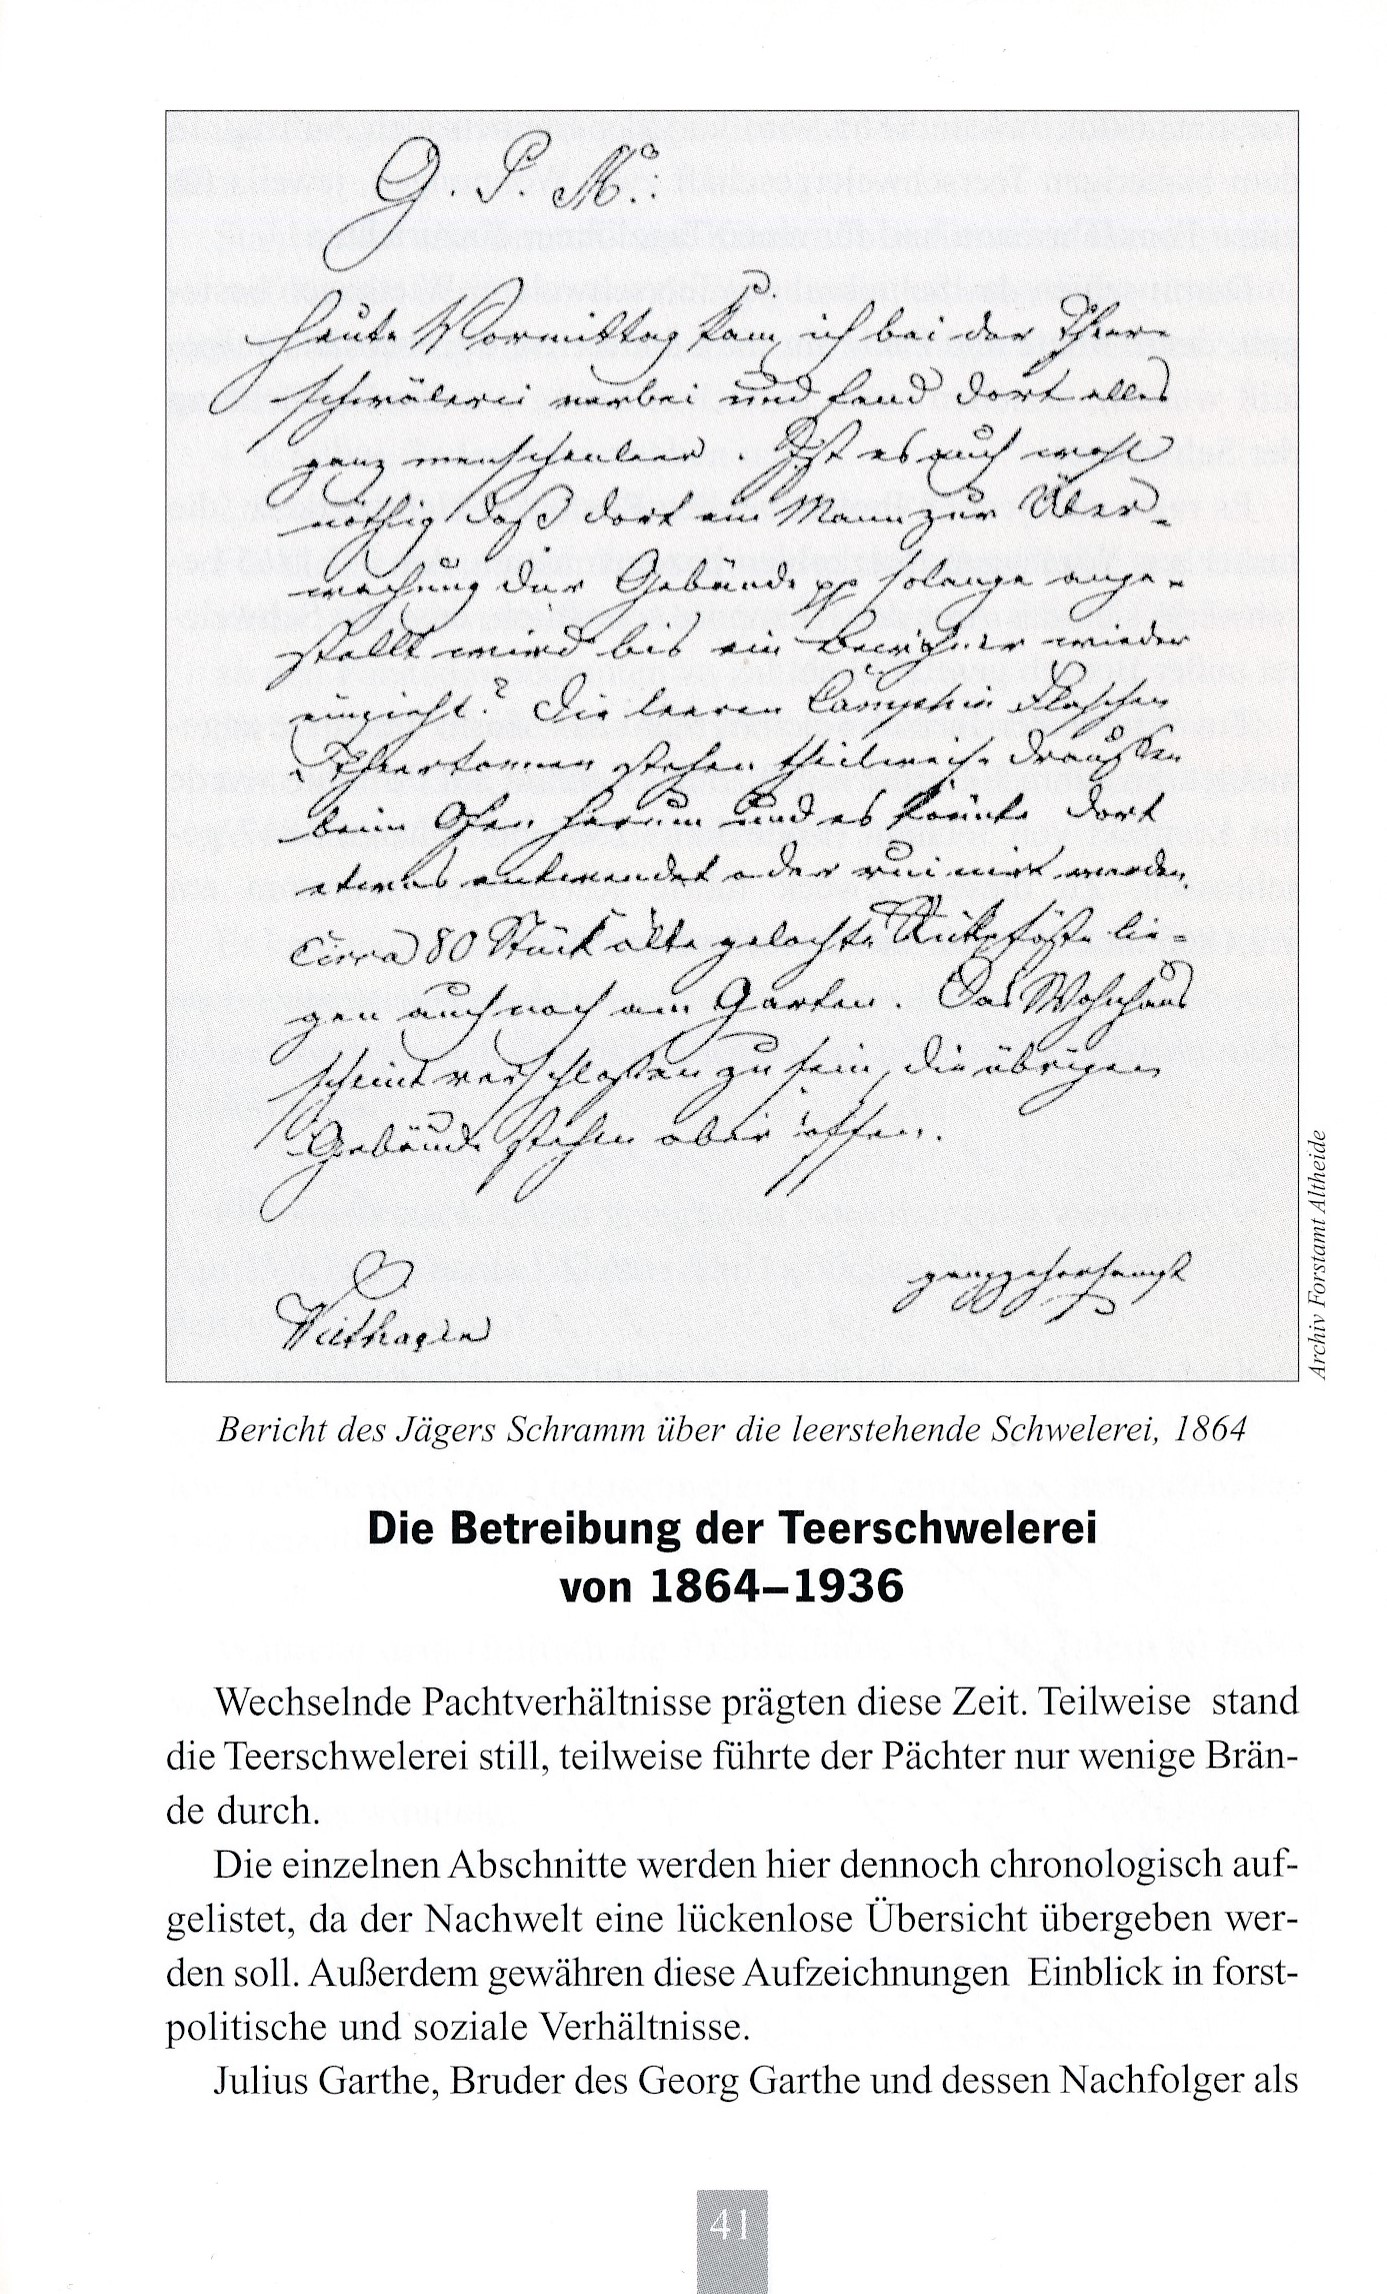 G. P. M.:
Heute Vormittag kam ich bei der Theer=
schwälerei vorbei und fand dort alles
ganz menschenleer. Ist es auch wohl
nöthig daß dort ein Mann zur Über=
wachung der Gebäude pp solange ange=
stellt wird bis ein Bewohner wieder
einzieht? Die leeren Camphin Flaschen
Theertonnen stehen theilweise draußen
beim Ofen herum und es könnte dort
etwas entwendet oder ruinirt werden.
Circa 80 Stück alte gelochte lie=
gen auch noch am Garten. Das Wohnhaus
scheint verschloßen zu sein, die übrigen
Gebäude stehen aber offen.
ganzgehorsamst
Wiethagen
Archiv Forstamt Altheide
Bericht des Jägers Schramm über die leerstehende Schwelerei, 1864
Die Betreibung der Teerschwelerei
von 1864–1936
Wechselnde Pachtverhältnisse prägten diese Zeit. Teilweise stand
die Teerschwelerei still, teilweise führte der Pächter nur wenige Brän-
de durch.
Die einzelnen Abschnitte werden hier dennoch chronologisch auf-
gelistet, da der Nachwelt eine lückenlose Übersicht übergeben wer-
den soll. Außerdem gewähren diese Aufzeichnungen Einblick in forst-
politische und soziale Verhältnisse.
Julius Garthe, Bruder des Georg Garthe und dessen Nachfolger als
41